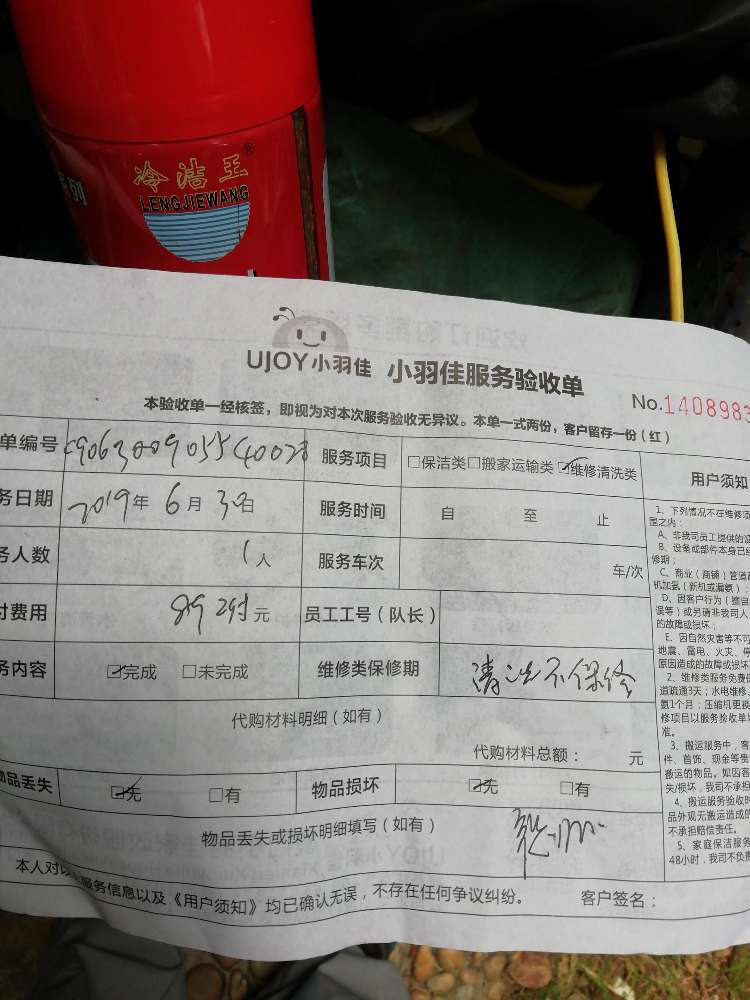 冷洁王®
LENGJIEWANG
UJOY小羽佳 小羽佳服务验收单
No.1408983
本验收单一经核签,即视为对本次服务验收无异议。本单一式两份,客户留存一份(红)
单编号 服务项目 □保洁类□搬家运输类☑维修清洗类 用户须知
务日期 2019年6月30日 服务时间 自 至 止
务人数 1人 服务车次 车/次
付费用 元 员工工号(队长)
务内容 ☑完成 □未完成 维修类保修期 清洗不保修
代购材料明细(如有)
代购材料总额: 元
物品丢失 ☑无 □有 物品损坏 ☑无 □有
物品丢失或损坏明细填写(如有)
本人对以 服务信息以及《用户须知》均已确认无误,不存在任何争议纠纷。 客户签名:
1、下列情况不在维修
围之内:
A、非我司员工提供的
B、设备或部件本身已
修期;
C、商业(商铺)管道
机加氨(新机或漏氨);
D、因客户行为(擅自
误等)或另请非我司人
的故障或损坏;
E、因自然灾害等不可
地震、雷电、火灾、停
原因造成的故障或损坏
2、维修类服务免费保
道疏通3天;水电维修、
氨1个月;压缩机更换
修项目以服务验收单
准。
3、搬运服务中,客
件、首饰、现金等贵
搬运的物品。如因客
失/损坏,我司不承担
4、搬运服务验收时
品外观无搬运造成的
不承担赔偿责任。
5、家庭保洁服务
48小时,我司不负责